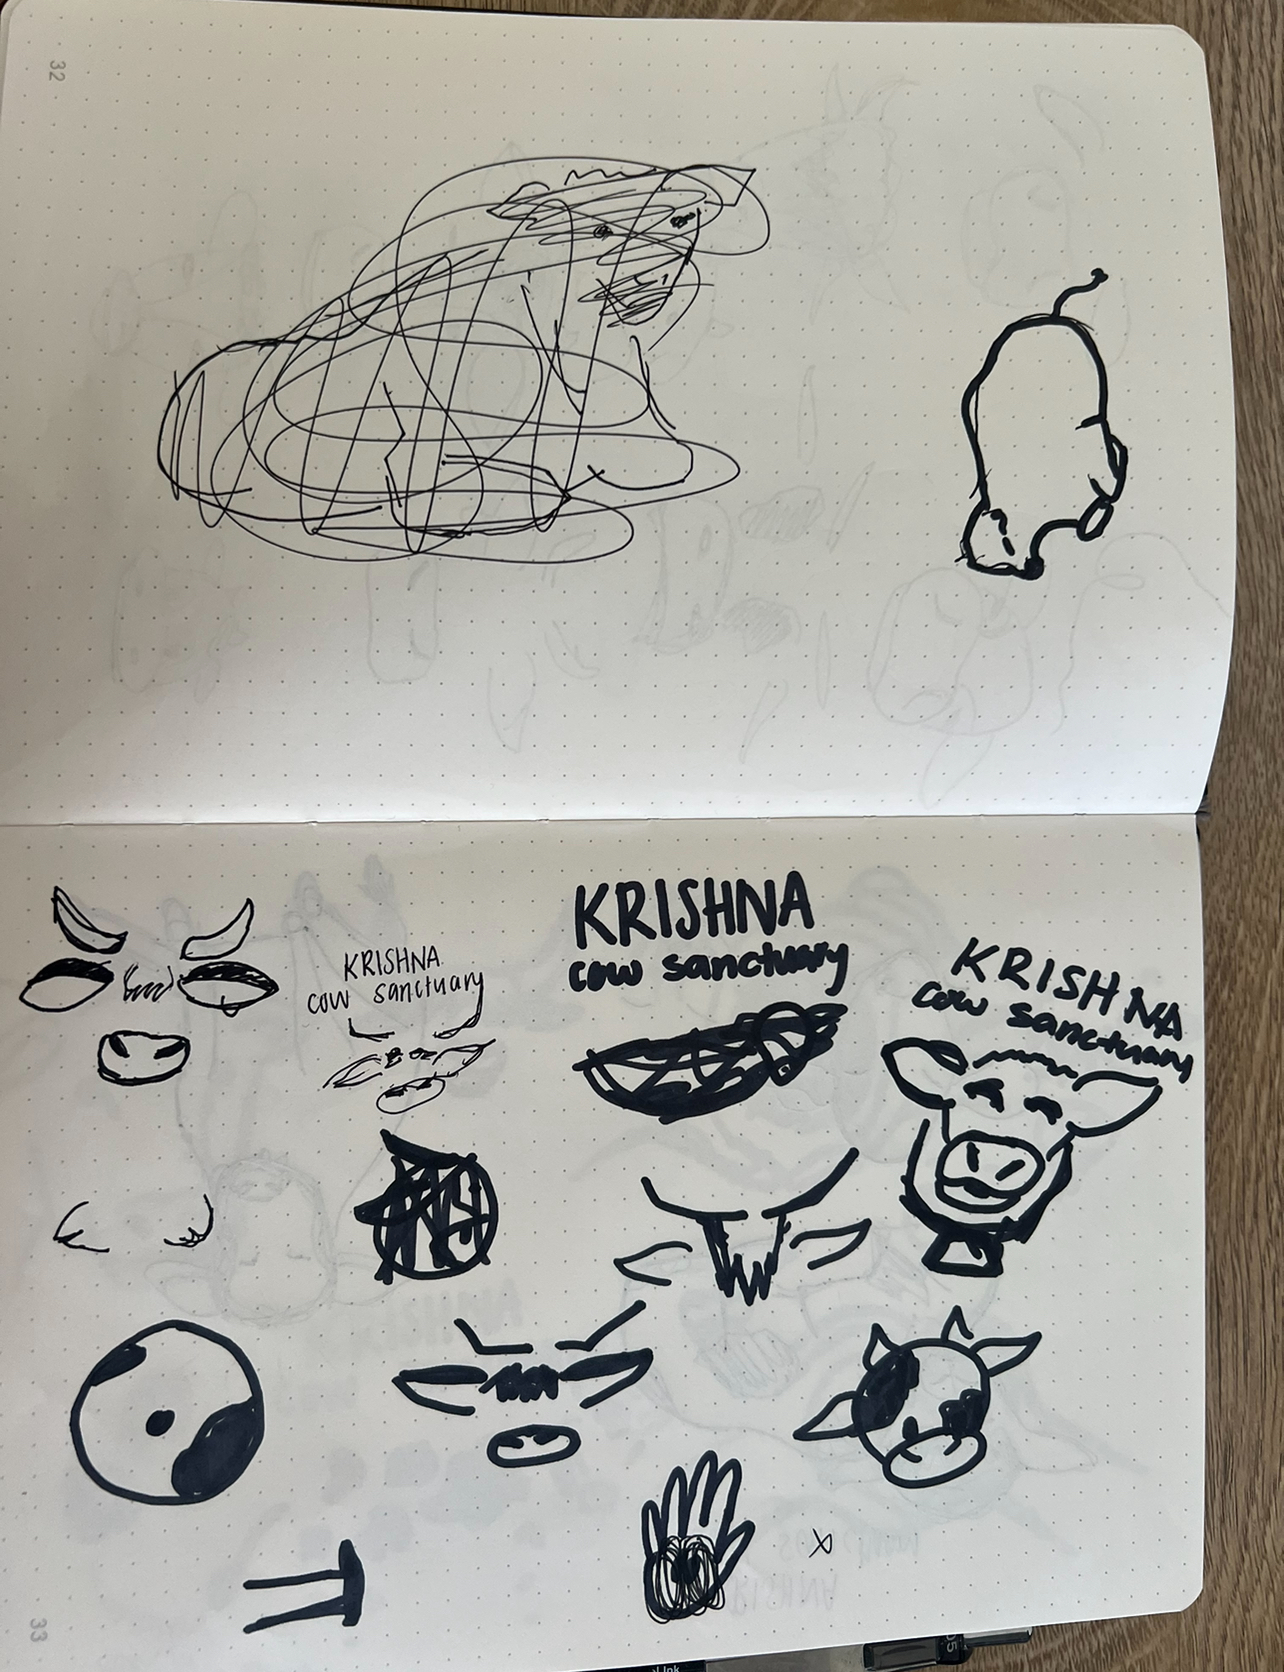 32
KRISHNA
cow sanctuary
KRISHNA
cow sanctuary
KRISHNA
cow sanctuary
x
33
Ink